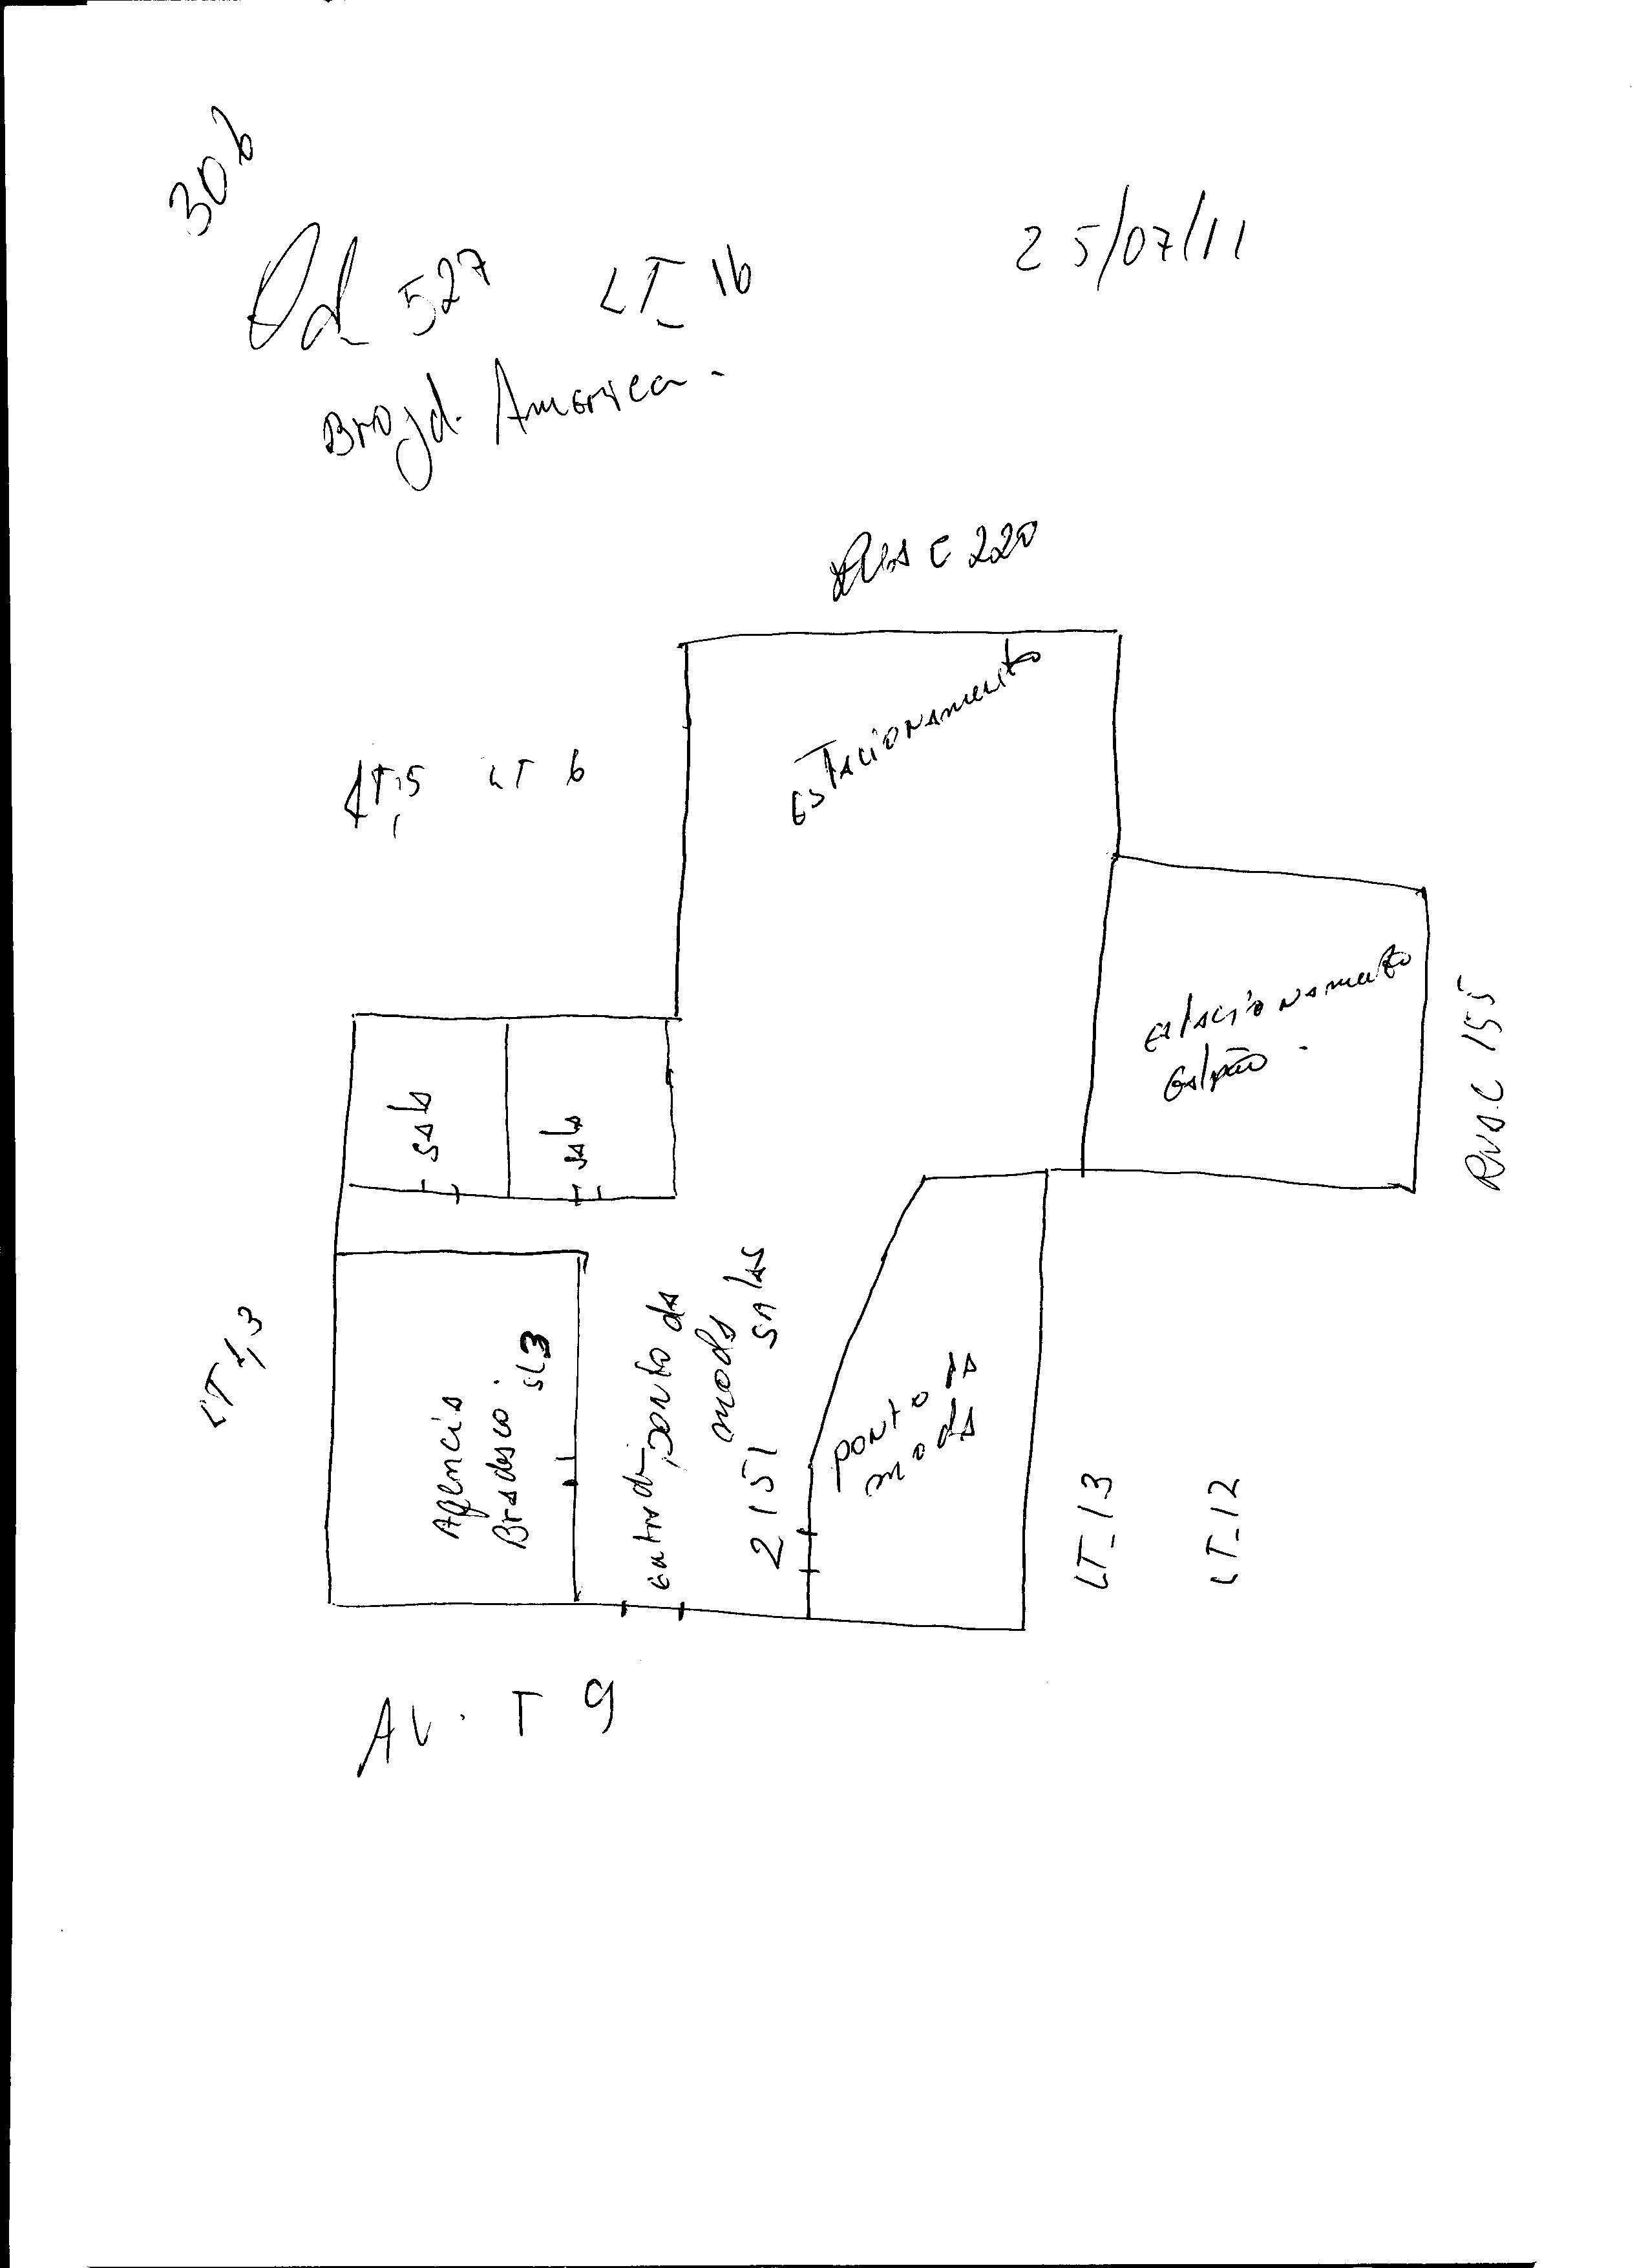 306
Qd 527 LT 16
25/07/11
Bro jd. America.
RUA C 220
estacionamento
LT,5 LT 6
estacionamento
Galpão.
RUA.C 155
sala
sala
LT 1,3
Agencia
Bradesco.
SL3
entrada, ponto da
moda
2151 SALAS
ponto da
moda
LT_13
LT_12
AV. T 9